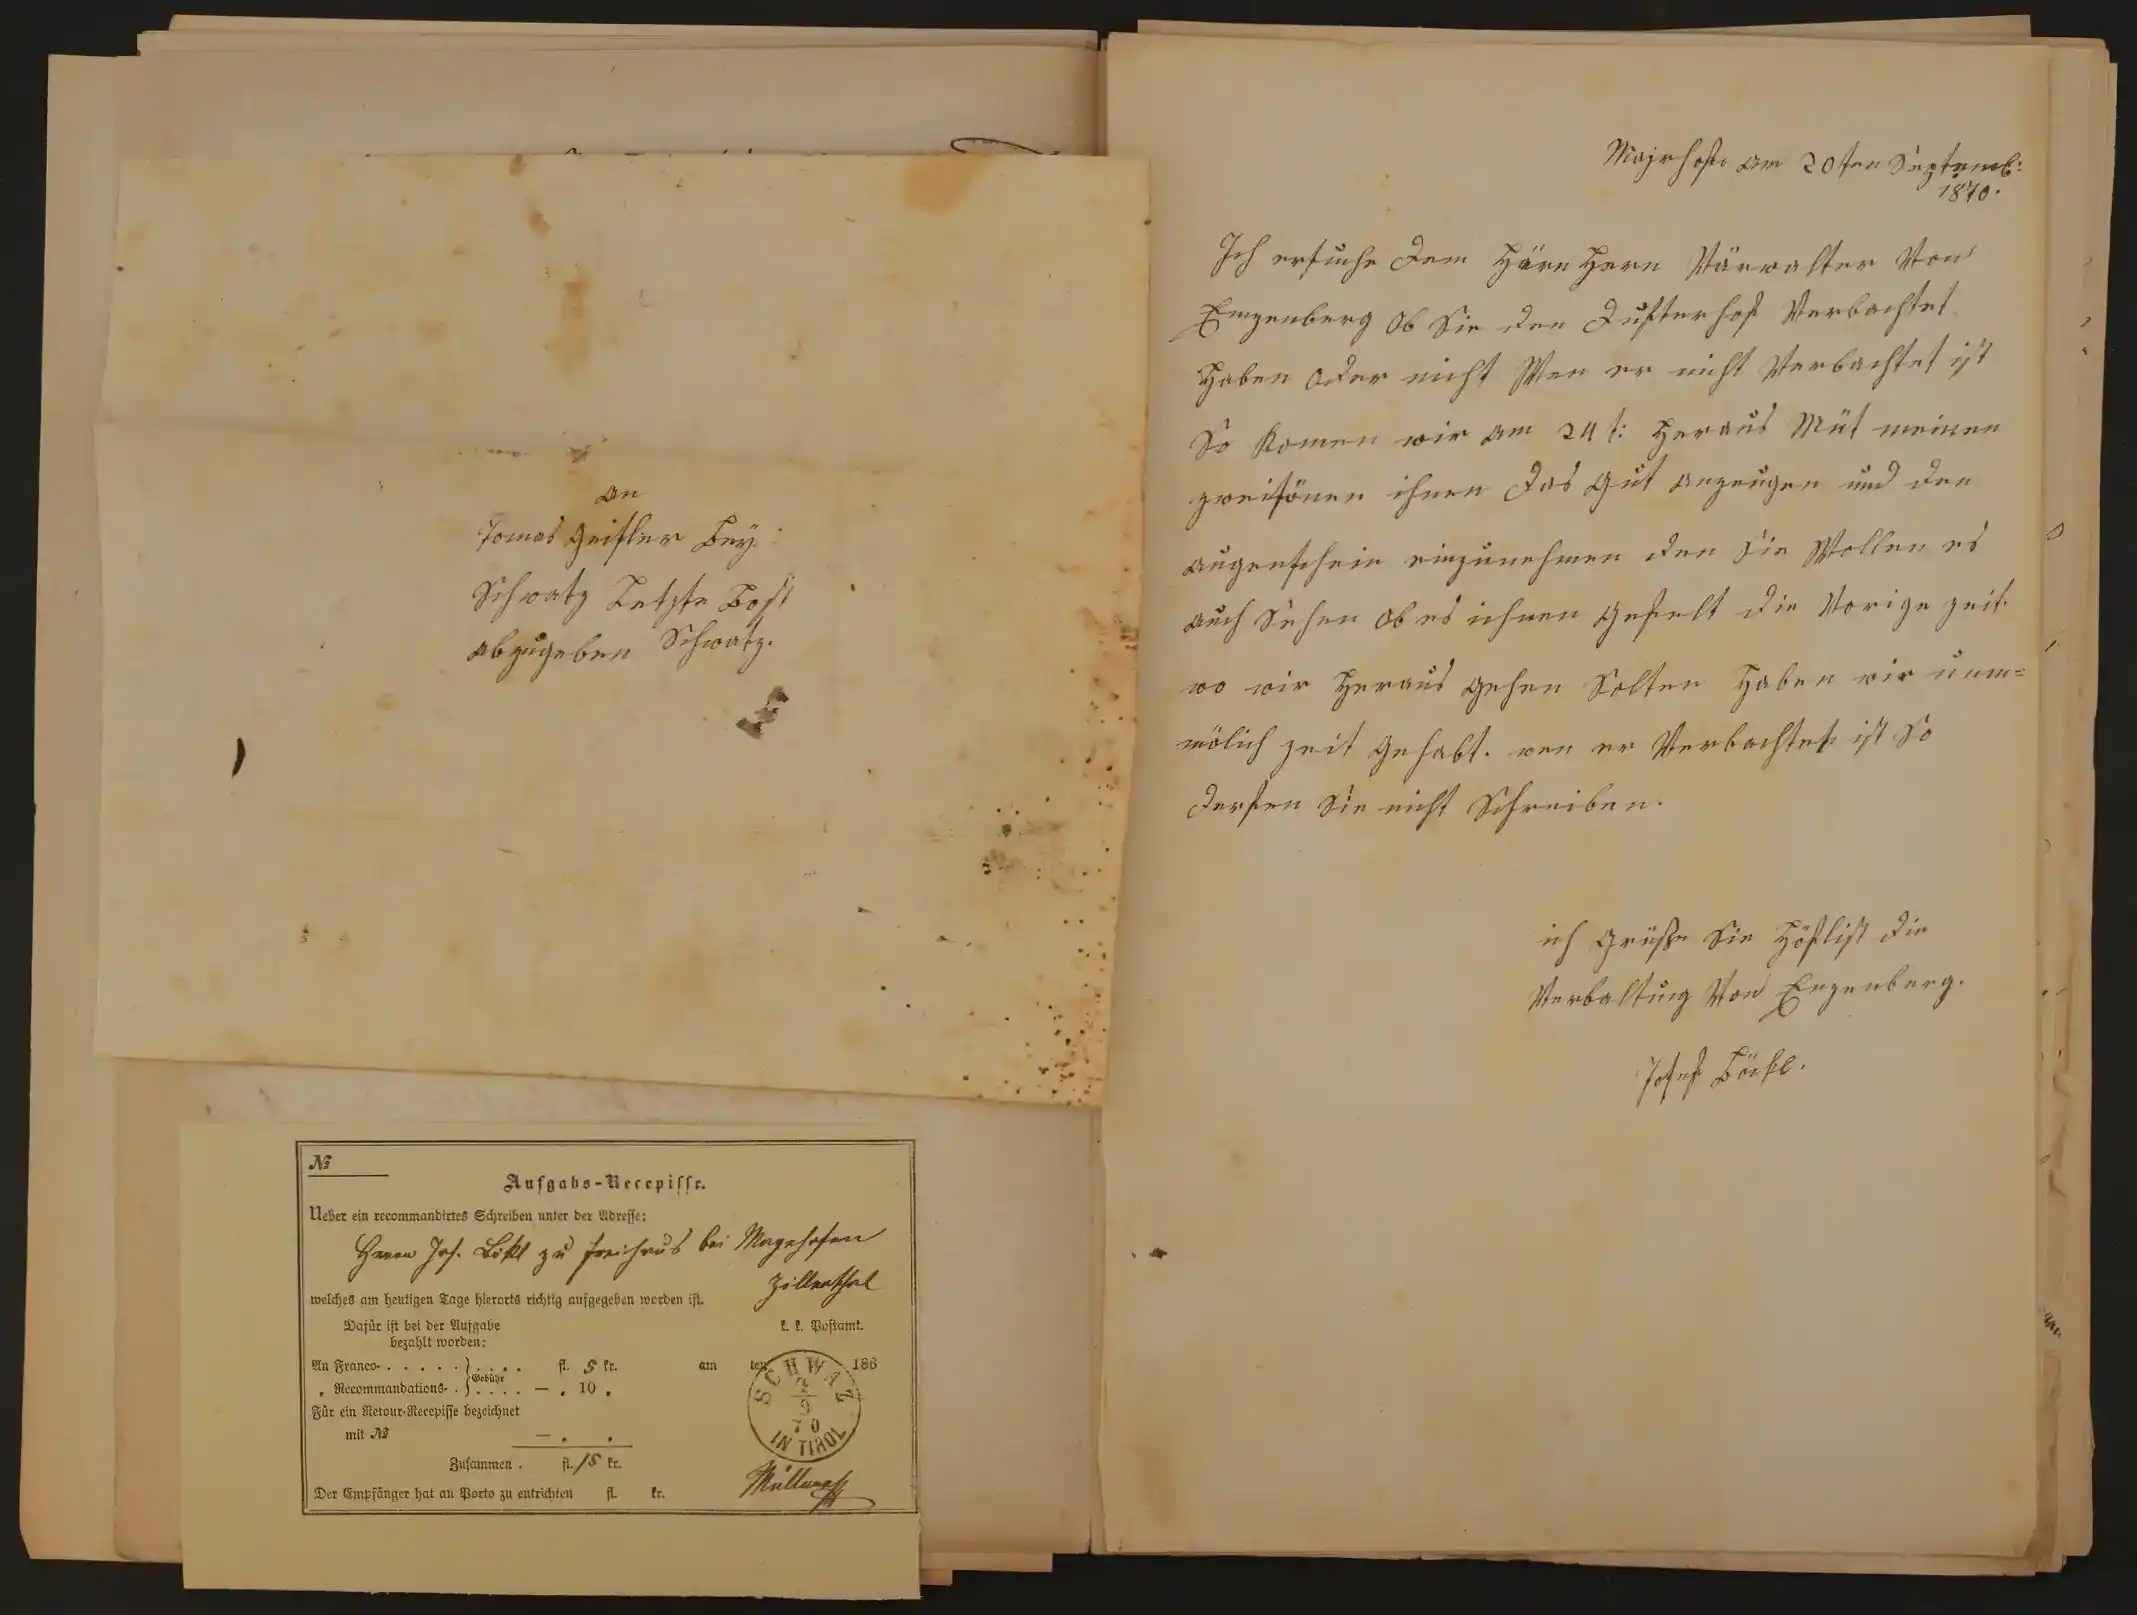 an
Tomas Geisler Bey
Schwatz Letzte Post
abzugeben Schwatz.
№
Aufgabs-Recepisse.
Ueber ein recommandirtes Schreiben unter der Adresse:
Herrn Jos. Bökl zu freihaus bei Mayrhofen
Zillerthal
welches am heutigen Tage hierorts richtig aufgegeben worden ist.
Dafür ist bei der Aufgabe
bezahlt worden:
k. k. Postamt.
An Franco- . . . . . } . . . . fl. 5 kr.
Gebühr
„ Recommandations- . } . . . . — „ 10 „
am ten 186
SCHWAZ
9
70
IN TIROL
Für ein Retour-Recepisse bezeichnet
mit № — „ „
Zusammen . fl. 15 kr.
Der Empfänger hat an Porto zu entrichten fl. kr.
Mayrhofe am 20ten Septemb:
1870.
Ich ersuche dem Härn Hern Värwalter Von
Enzenberg Ob Sie den Lusterhof Verbachtet
Haben Oder nicht Wen er nicht Verbachtet ist
So Komen wir am 24t: Heraus Müt meinen
zweisönen ihnen das Gut anzeugen und den
augenschein einzunehmen den Sie Wollen es
auch Sehen Ob es ihnen Gefelt die Vorige zeit
wo wir Heraus gehen Solten Haben wir unm=
mölich zeit Gehabt. wen er Verbachtet ist So
derfen Sie nicht Schreiben.
ich Grüße Sie Höflist die
Verbaltung Von Enzenberg.
Josef Böckl.